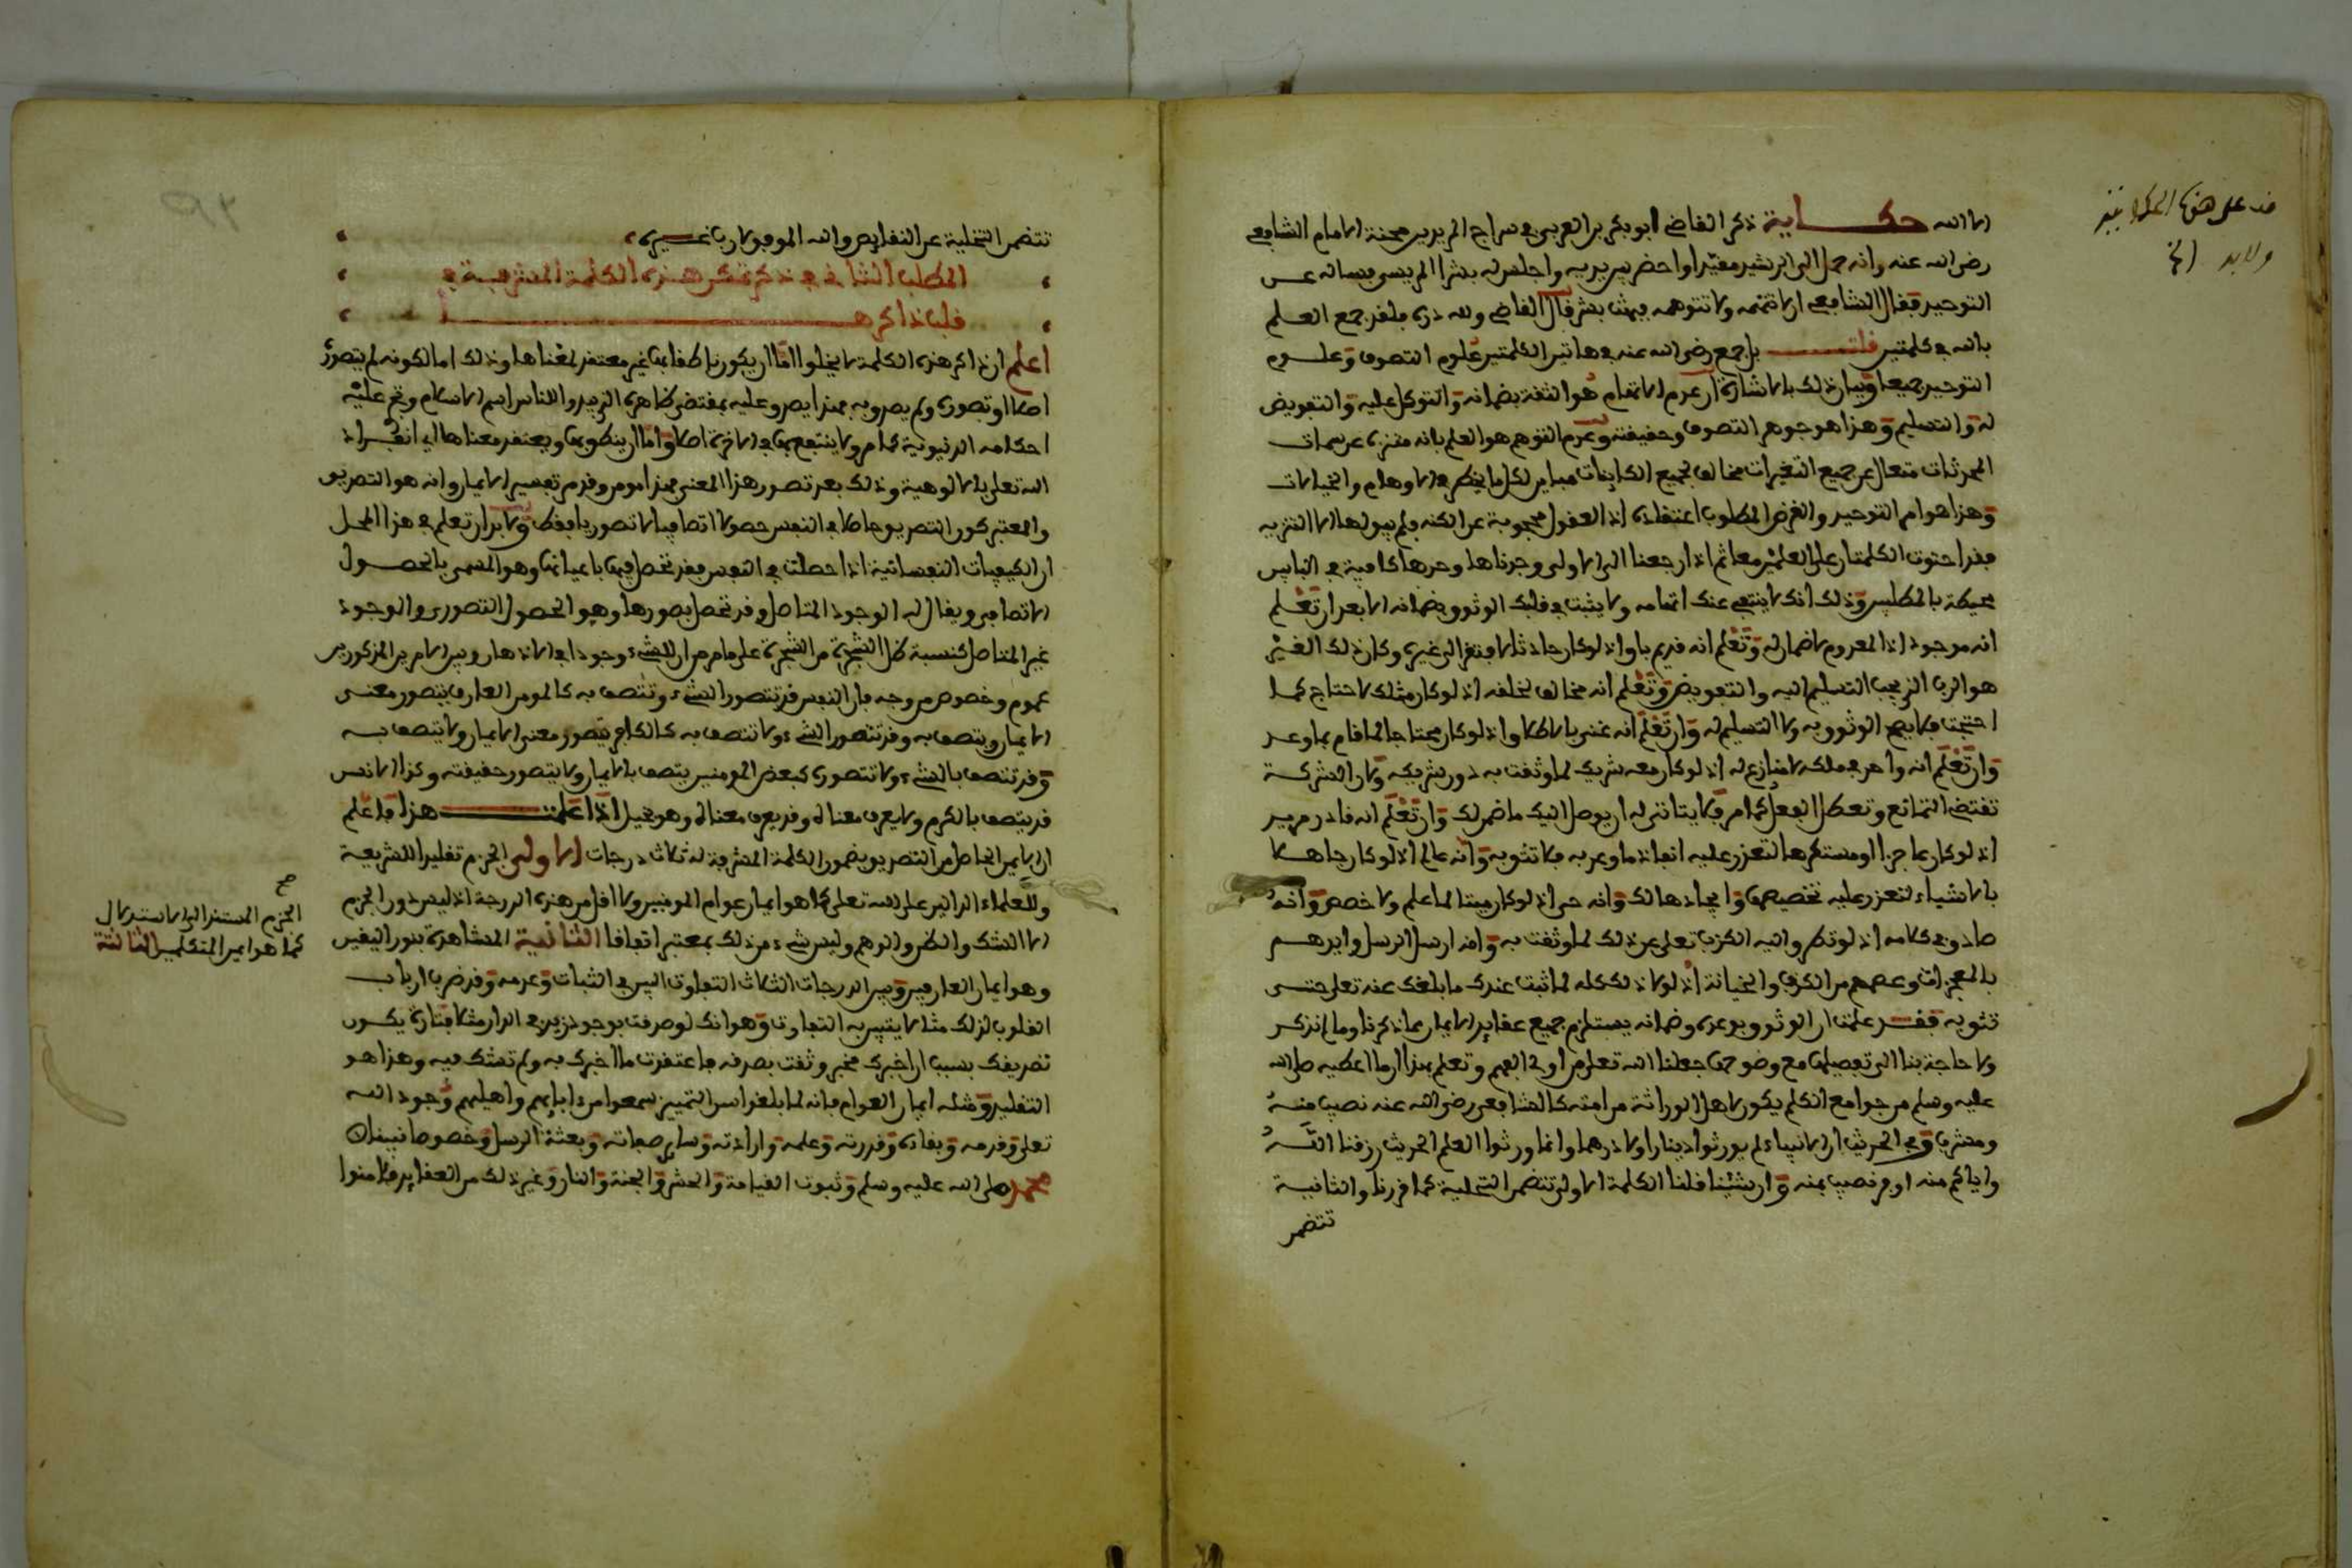 الا الله حكاية ذكر القاضي ابو بكر بن العربي في سراج المريدين محنة الامام الشافعي
رضي الله عنه وانه حمل الى الرشيد مقيدا واحضر بين يديه واجلس له بشرا المريسي يساله عن
التوحيد فقال الشافعي ان لا تتهمه ولا تتوهمه فبهت بشر قال القاضي ولله دره فلقد جمع العلم
بالله في كلمتين قلت بل جمع رضي الله عنه في هاتين الكلمتين علوم التصوف وعلوم
التوحيد جميعا وبيان ذلك بالاشارة ان عدم الاتهام هو الثقة بضمانه والتوكل عليه والتفويض
له والتسليم وهذا هو جوهر التصوف وحقيقته وعدم التوهم هو العلم بانه منزه عن سمات
المحدثات متعال عن جميع التغيرات مخالف لجميع الكاينات مباين لكل ما يخطر في الاوهام والخيالات
وهذا هو ام التوحيد والغرض المطلوب اعتقاده اذ العقول محجوبة عن الكنه فلم يبق لها الا التنزيه
فقد احتوت الكلمتان على العلمين معا ثم اذا رجعنا الى الاولى وجدناها وحدها كافية في الباب
محيطة بالمطلبين وذلك انك لا ينتفي عنك اتهامه ولا يثبت في قلبك الوثوق بضمانه الا بعد ان تعلم
انه موجود اذ المعدوم لا ضمان له وتعلم انه قديم باق اذ لو كان حادثا لافتقر الى غيره وكان ذلك الغير
هو الرب الذي يجب التسليم اليه والتفويض وتعلم انه مخالف لخلقه اذ لو كان مثلك لاحتاج كما
احتجت فلا يصح الوثوق به ولا التسليم له وان تعلم انه غني بالاطلاق اذ لو كان محتاجا لما قام بما وعد
وان تعلم انه واحد في ملكه لا منازع له اذ لو كان معه شريك لما وثقت به دون شريكه ولان الشركة
تقتضي التمانع وتعطل الفعل كما مر فلا يتاتى له ان يوصل اليك ما ضمن لك وان تعلم انه قادر مريد
اذ لو كان عاجزا او مستكرها لتعذر عليه انفاذ ما وعد به فلا تثق به وانه عالم اذ لو كان جاهلا
بالاشياء لتعذر عليه تخصيصها وايجادها لك وانه حي اذ لو كان ميتا لما علم ولا خصص وانه
صادق في كلامه اذ لو تطرق اليه الكذب تعلى عن ذلك لما وثقت به وانه ارسل الرسل وايدهم
بالمعجزات وعصمهم من الكذب والخيانة اذ لولا ذلك كله لما ثبت عندك ما بلغك عنه تعلى حتى
تثق به فقد علمت ان الوثوق بوعده وضمانه يستلزم جميع عقايد الايمان مما ذكرنا وما لم نذكر
ولا حاجة بنا الى تفصيلها مع وضوحها جعلنا الله تعلى من اولي الفهم وتعلم بهذا ان ما اعطيه صلى الله
عليه وسلم من جوامع الكلم يكون لاهل الوراثة من امته كالشافعي رضي الله عنه نصيب منه
ومشرب وفي الحديث ان الانبياء لم يورثوا دينارا ولا درهما وانما ورثوا العلم الحديث رزقنا الله
واياكم منه اوفر نصيب بمنه وان شئنا قلنا الكلمة الاولى تتضمن التحلية كما قررنا والثانية
تتضمن
تتضمن التخلية عن النقايص والله الموفق لا رب غيره
المطلب الثاني في ذكر تمكن هذه الكلمة المشرفة في
قلب ذاكرها
اعلم ان ذاكر هذه الكلمة لا يخلوا اما ان يكون ناطقا بها غير معتقد لمعناها وذلك اما لكونه لم يتصوره
اصلا او تصوره ولم يصدق به فهذا يصدق عليه بمقتضى ظاهره الذي يبدوا للناس اسم الاسلام وتجري عليه
احكامه الدنيوية كما مر ولا ينتفع بها في الاخرة اصلا واما ان ينطق بها ويعتقد معناها اي انفراد
الله تعلى بالالوهية وذلك بعد تصور هذا المعنى فهذا مومن وقد مر تفسير الايمان وانه هو التصديق
والمعتبر كون التصديق حاصلا في النفس حصولا اتصافيا لا تصوريا فقط ولا بد ان تعلم في هذا المحل
ان الكيفيات النفسانية اذا حصلت في النفس فقد تحصل فيها باعيانها وهو المسمى بالحصول
الاتصافي ويقال له الوجود المتاصل وقد تحصل بصورها وهو الحصول التصوري والوجود
غير المتاصل كنسبة ظل الشجرة من الشجرة على ما مر من ان للشيء وجودا في الاذهان وبين الامرين المذكورين
عموم وخصوص من وجه فان النفس قد تتصور الشيء وتتصف به كالمومن العارف يتصور معنى
الايمان ويتصف به وقد تتصور الشيء ولا تتصف به كالكافر يتصور معنى الايمان ولا يتصف به
وقد تتصف بالشيء ولا تتصوره كبعض المومنين يتصف بالايمان ولا يتصور حقيقته وكذا الانسان
قد يتصف بالكرم ولا يعرف معناه وقد يعرف معناه وهو بخيل اذا علمت هذا فاعلم
ان الايمان الحاصل من التصديق بمضمون الكلمة المشرفة له ثلاث درجات الاولى الجزم تقليدا للشريعة
وللعلماء الدالين على الله تعلى كما هو ايمان عوام المومنين ولا اقل من هذه الدرجة اذ ليس دون الجزم
الا الشك والظن والوهم وليس شيء من ذلك بمعتبر اتفاقا الثانية المشاهدة بنور اليقين
وهو ايمان العارفين وبين الدرجات الثلاث التفاوت البين في الثبات وعدمه وقد ضرب ارباب
القلوب لذلك مثلا يتبين به التفاوت وهو انك لو صدقت بوجود زيد في الدار مثلا فتارة يكون
تصديقك بسبب ان اخبرك مخبر وثقت بصدقه فاعتقدت ما اخبرك به ولم تشك فيه وهذا هو
التقليد ومثله ايمان العوام فانه لما بلغوا سن التمييز سمعوا من ابايهم واهليهم وجود الله
تعلى وقدمه وبقاءه وقدرته وعلمه وارادته وساير صفاته وبعثة الرسل وخصوصا نبينا
محمد صلى الله عليه وسلم وثبوت القيامة والحشر والجنة والنار وغير ذلك من العقايد فلامنوا
صح
الجزم المستند الى الاستدلال
كما هو ايمان المتكلمين الثالثة